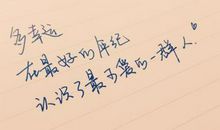 多幸运
在最好的年纪
认识了最可爱的一群人。